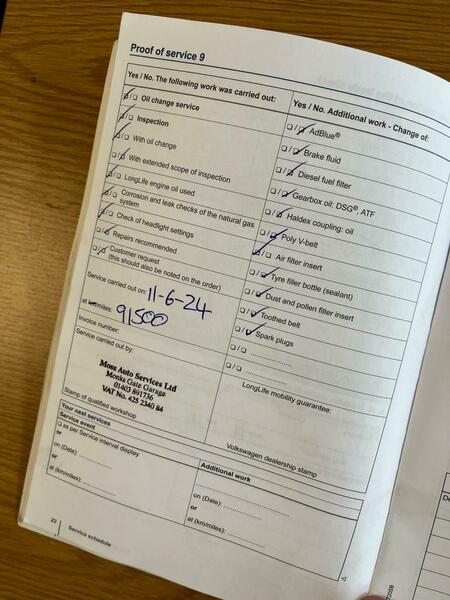 Proof of service 9
Yes / No. The following work was carried out:
Oil change service
Inspection
With oil change
With extended scope of inspection
LongLife engine oil used
Corrosion and leak checks of the natural gas
system
Check of headlight settings
Repairs recommended
Customer request
(this should also be noted on the order)
Service carried out on: 11-6-24
at km/miles: 91500
Invoice number:
Service carried out by:
Moss Auto Services Ltd
Monks Gate Garage
01403 891736
VAT No. 425 2340 84
Stamp of qualified workshop
Yes / No. Additional work - Change of:
AdBlue®
Brake fluid
Diesel fuel filter
Gearbox oil: DSG®, ATF
Haldex coupling: oil
Poly V-belt
Air filter insert
Tyre filler bottle (sealant)
Dust and pollen filter insert
Toothed belt
Spark plugs
LongLife mobility guarantee:
Volkswagen dealership stamp
Your next services
Service event
as per Service interval display
or
on (Date):
or
at (km/miles):
Additional work
on (Date):
or
at (km/miles):
22
Service schedule